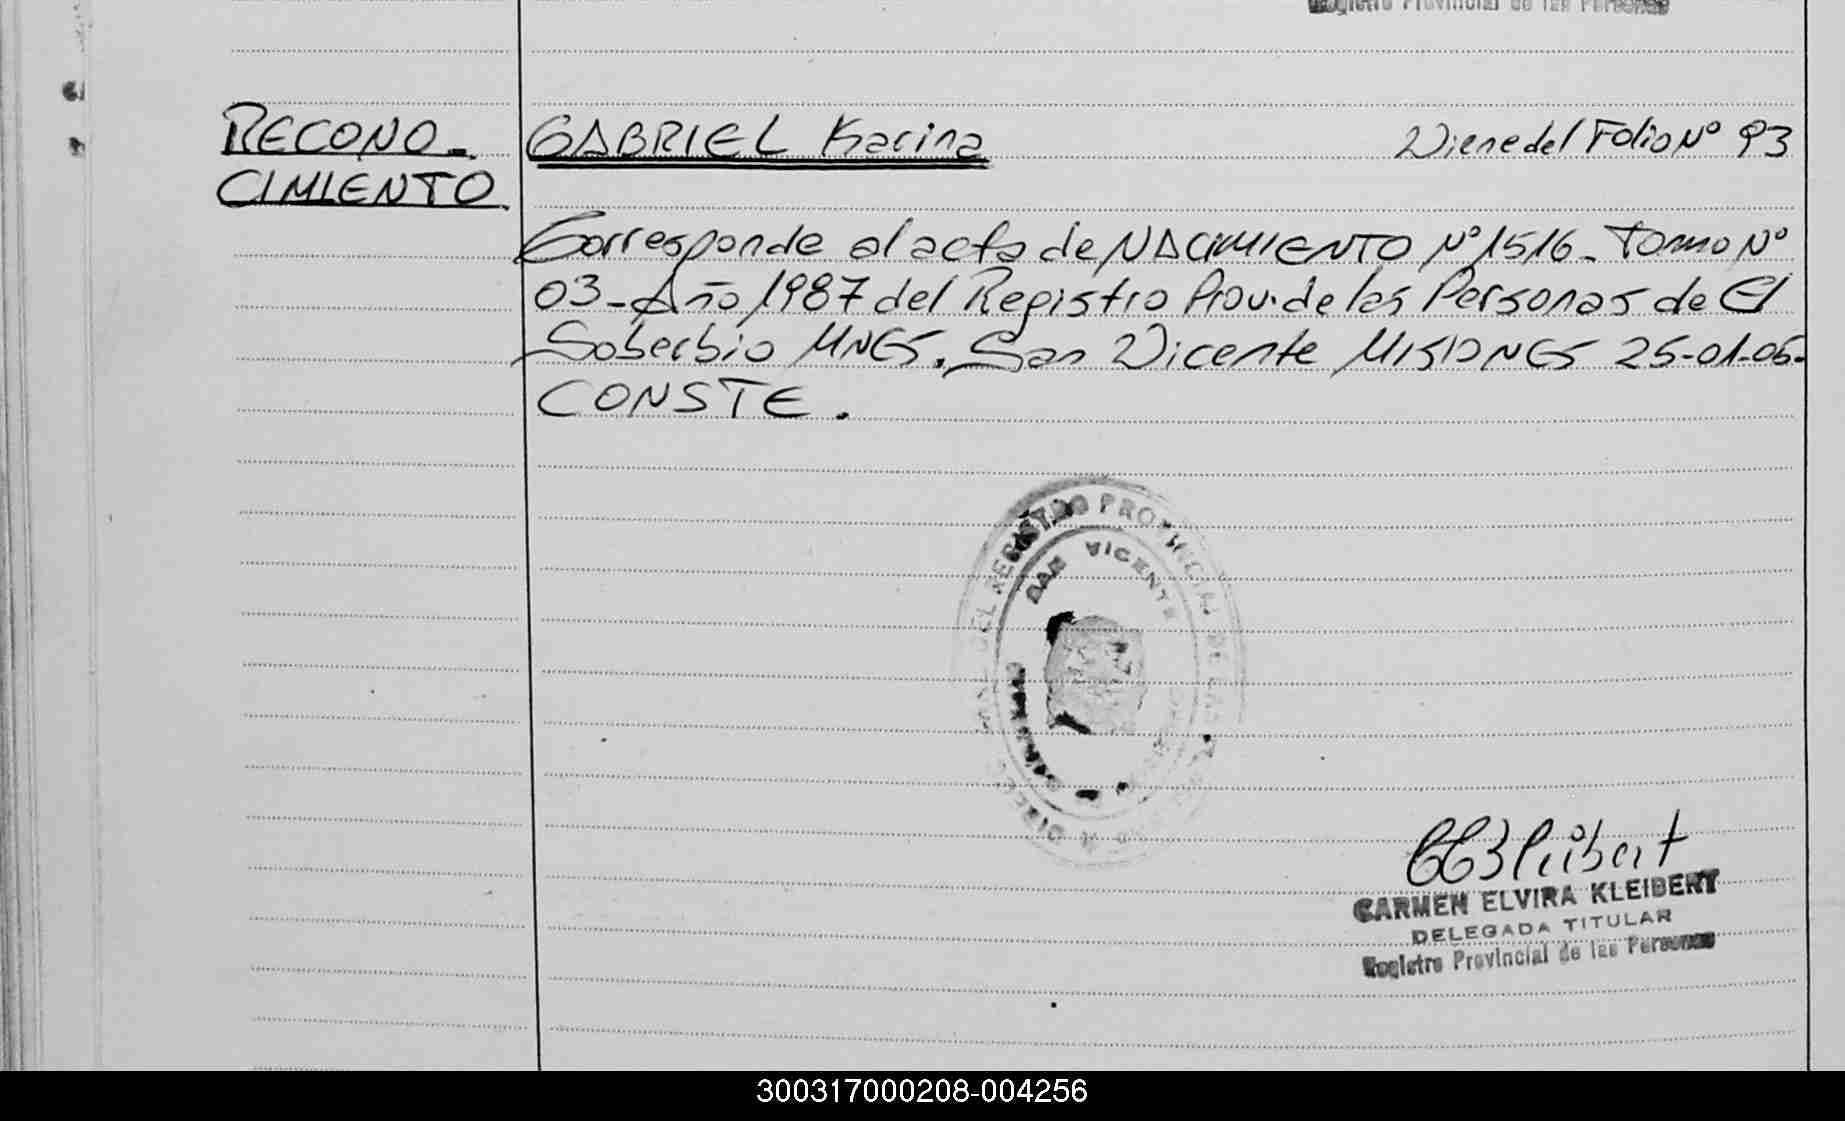 Registro Provincial de las Personas
RECONO-
CIMIENTO
GABRIEL Karina
Viene del Folio Nº 93
Corresponde al acta de NACIMIENTO Nº 1516- Tomo Nº
03- Año 1987 del Registro Prov. de las Personas de El
Soberbio MNES. San Vicente MISIONES 25-01-06-
CONSTE.
DEL REGISTRO PROVINCIAL DE LAS
SAN VICENTE
CARMEN ELVIRA KLEIBERT
DELEGADA TITULAR
Registro Provincial de las Personas
300317000208-004256